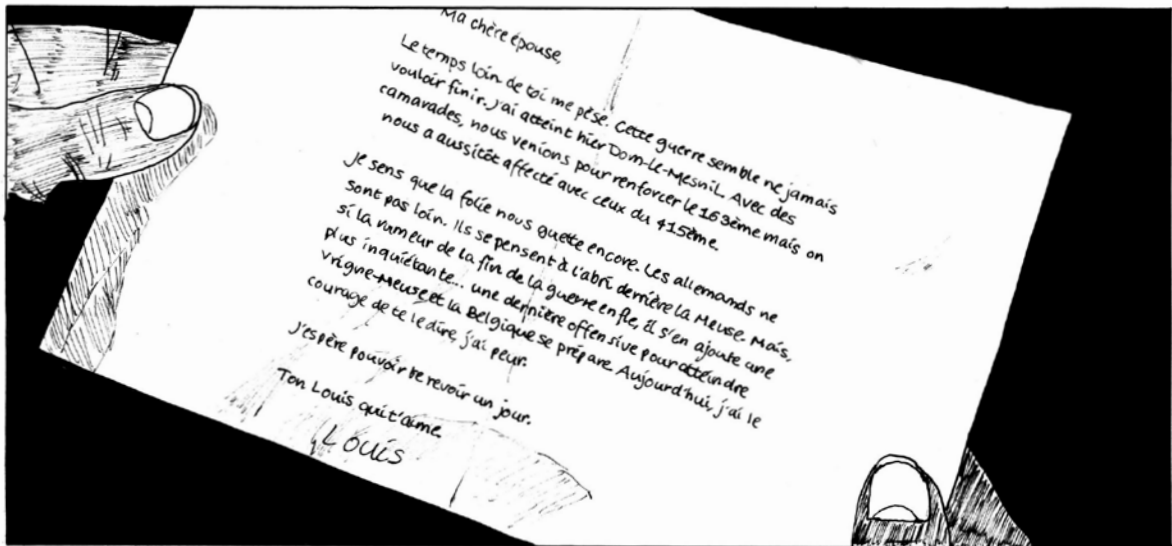 Ma chère épouse,
Le temps loin de toi me pèse. Cette guerre semble ne jamais
vouloir finir. J'ai atteint hier Dom-Le-Mesnil. Avec des
camarades, nous venions pour renforcer le 163ème mais on
nous a aussitôt affecté avec ceux du 415ème.
Je sens que la folie nous guette encore. Les allemands ne
sont pas loin. Ils se pensent à l'abri derrière la Meuse. Mais,
si la rumeur de la fin de la guerre enfle, il s'en ajoute une
plus inquiétante... une dernière offensive pour atteindre
Vrigne-Meuse et la Belgique se prépare. Aujourd'hui, j'ai le
courage de te le dire, j'ai peur.
J'espère pouvoir te revoir un jour.
Ton Louis qui t'aime.
LOUIS